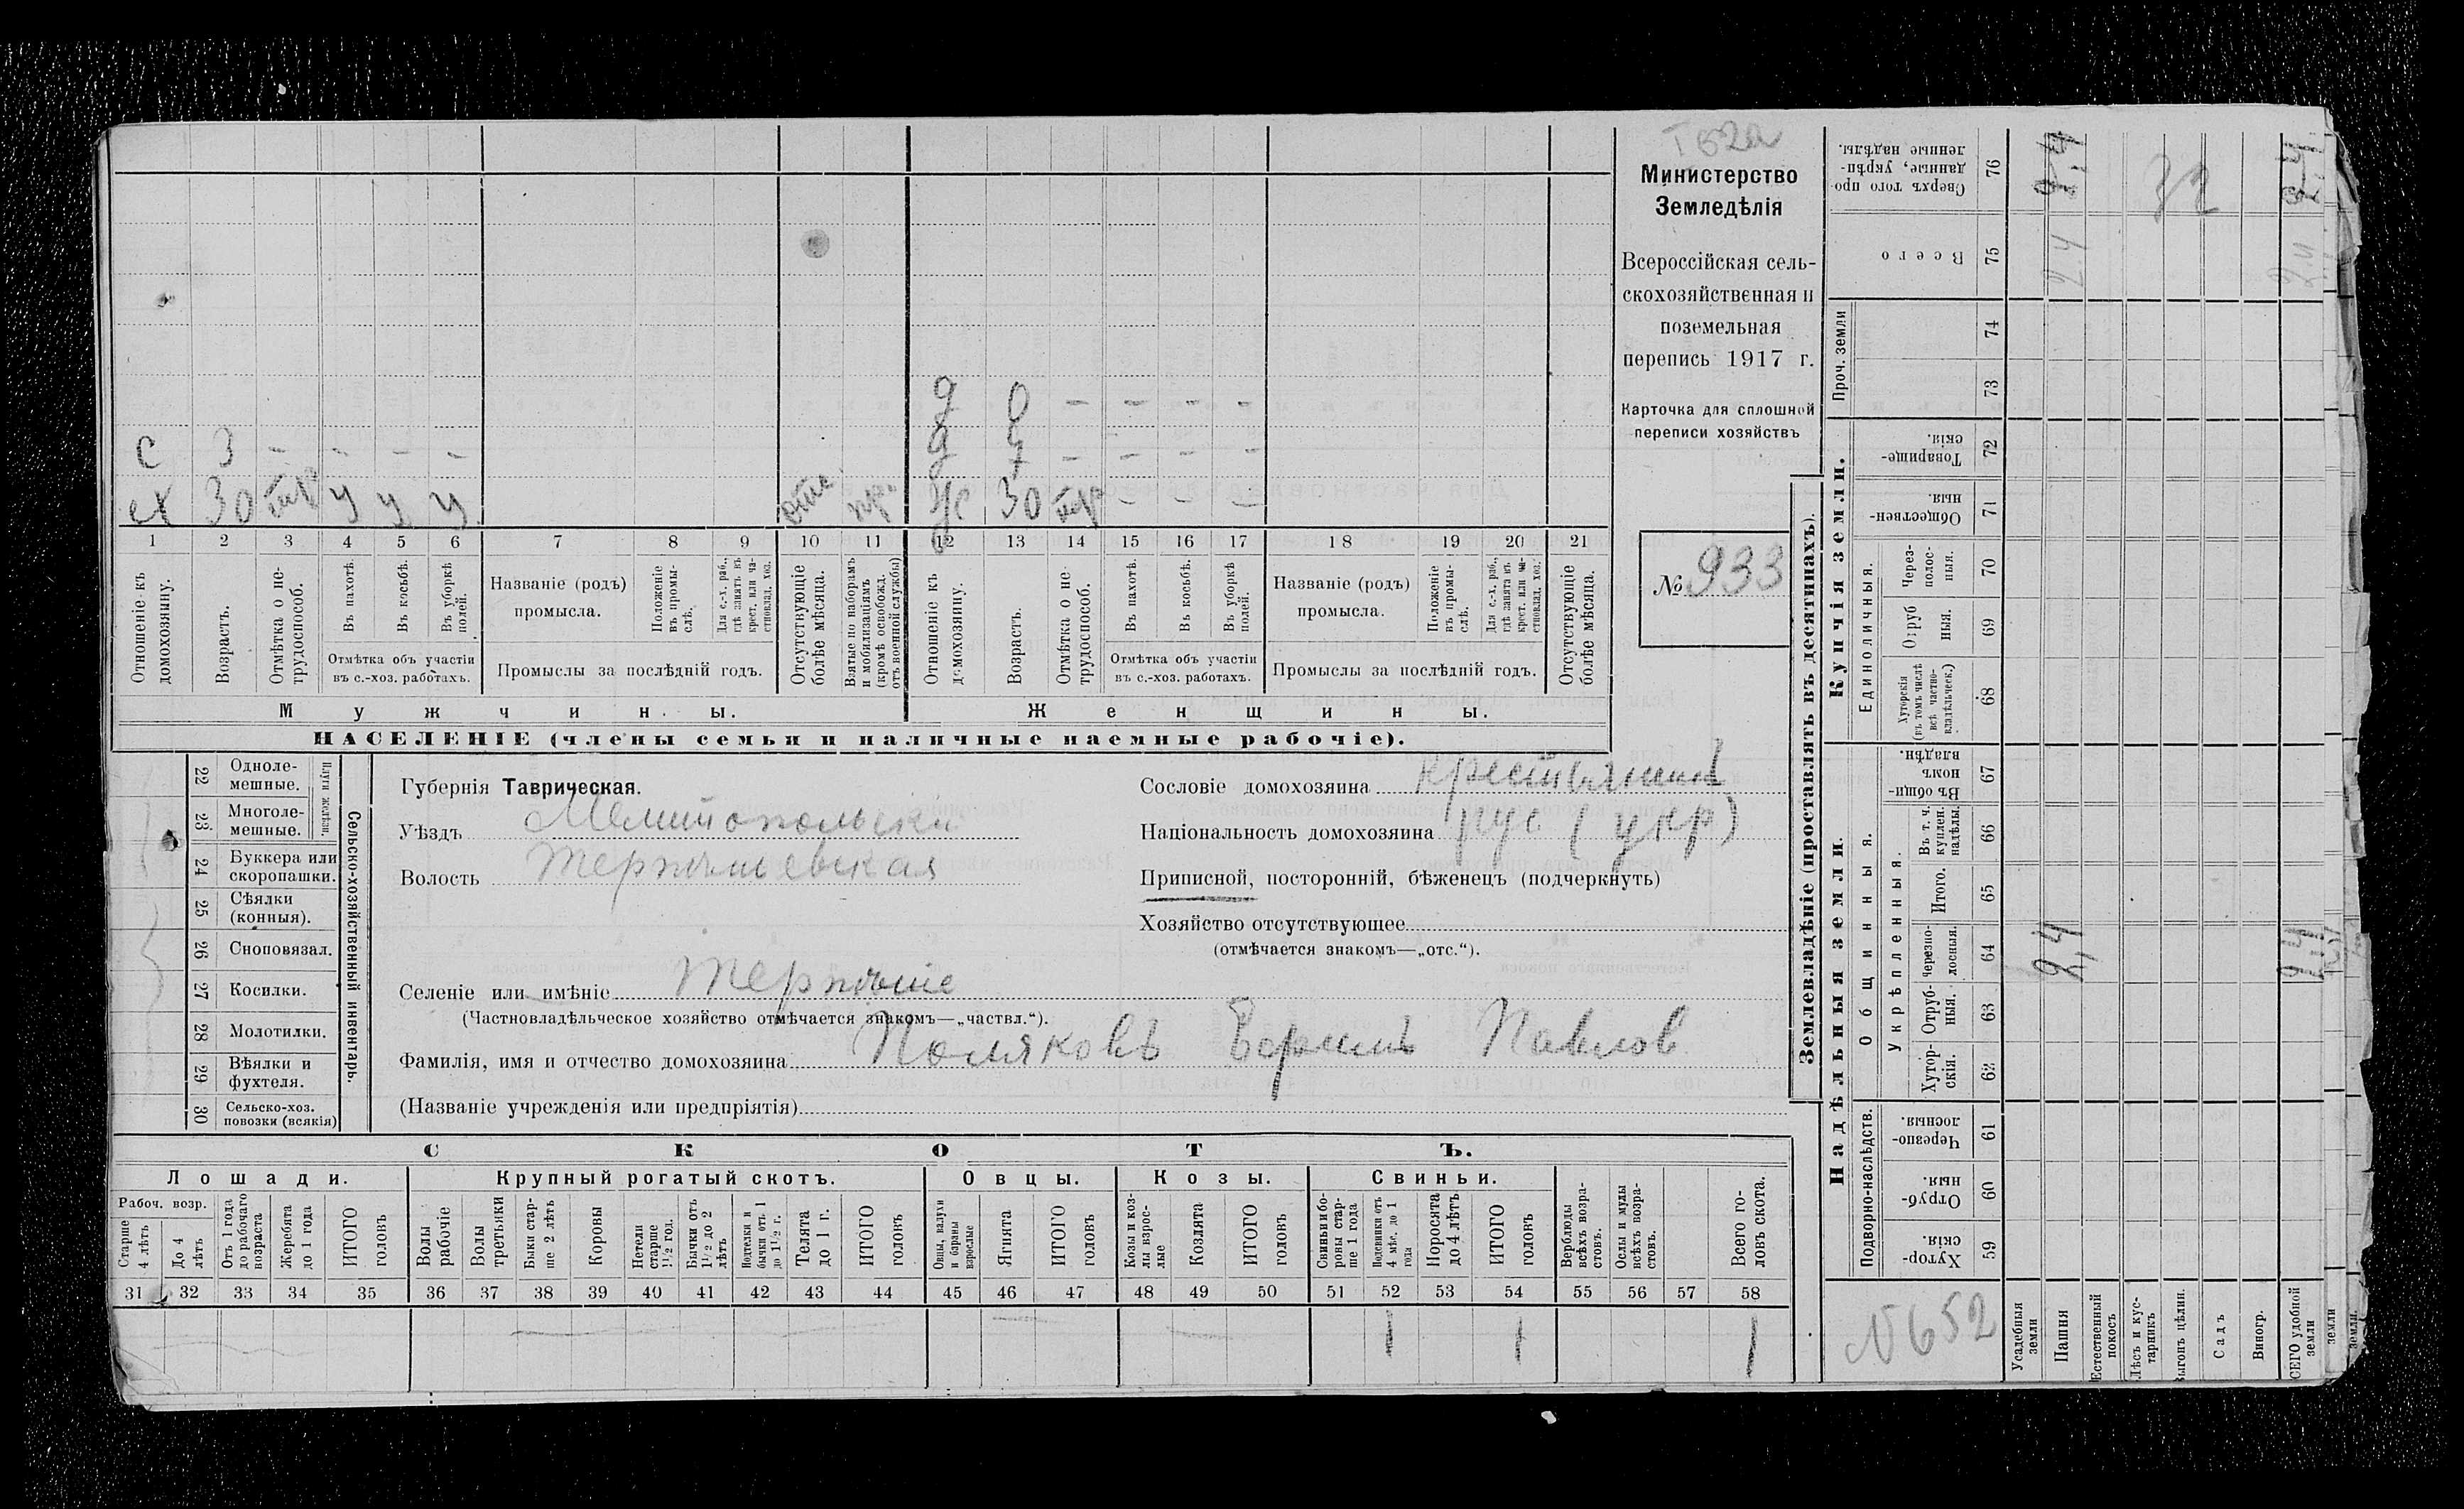 Т 62а
Министерство
Земледѣлія
Всероссійская сель-
скохозяйственная и
поземельная
перепись 1917 г.
Карточка для сплошной
переписи хозяйствъ
№ 933
д 0 – – – –
с 3 – – – –
д 7 – – – –
сх 30 у у у
ж 30 – – –
1 2 3 4 5 6 7 8 9 10 11 12 13 14 15 16 17 18 19 20 21
Отношеніе къ домохозяину.
Возрастъ.
Отмѣтка о не-трудоспособ.
Въ пахотѣ.
Въ косьбѣ.
Въ уборкѣ полей.
Отмѣтка объ участіи въ с.-хоз. работахъ.
Названіе (родъ) промысла.
Положеніе въ промы-слѣ.
Для с.-х. раб., гдѣ занятъ въ крест. или ча-стновлад. хоз.
Промыслы за послѣдній годъ.
Отсутствующіе болѣе мѣсяца.
Взятые по наборамъ и мобилизаціямъ (кромѣ освобожд. отъ военной службы)
Отношеніе къ домохозяину.
Возрастъ.
Отмѣтка о не-трудоспособ.
Въ пахотѣ.
Въ косьбѣ.
Въ уборкѣ полей.
Отмѣтка объ участіи въ с.-хоз. работахъ.
Названіе (родъ) промысла.
Положеніе въ промы-слѣ.
Для с.-х. раб., гдѣ занята въ крест. или ча-стновлад. хоз.
Промыслы за послѣдній годъ.
Отсутствующіе болѣе мѣсяца.
Мужчины. Женщины.
НАСЕЛЕНІЕ (члены семьи и наличные наемные рабочіе).
Сельско-хозяйственный инвентарь.
Плуги желѣзн.
22 Одноле-мешные.
23 Многоле-мешные.
24 Буккера или скоропашки.
25 Сѣялки (конныя).
26 Сноповязал.
27 Косилки.
28 Молотилки.
29 Вѣялки и фухтеля.
30 Сельско-хоз. повозки (всякія)
Губернія Таврическая.
Уѣздъ Мелитопольскій
Волость Терпѣньевская
Селеніе или имѣніе Терпѣніе
(Частновладѣльческое хозяйство отмѣчается знакомъ—„частвл.“).
Фамилія, имя и отчество домохозяина Поляковъ Павлов
(Названіе учрежденія или предпріятія)
Сословіе домохозяина крестьянинъ
Національность домохозяина рус (укр)
Приписной, посторонній, бѣженецъ (подчеркнуть)
Хозяйство отсутствующее
(отмѣчается знакомъ—„отс.“).
СКОТЪ.
Лошади. Крупный рогатый скотъ. Овцы. Козы. Свиньи.
Рабоч. возр.
Старше 4 лѣтъ
До 4 лѣтъ
Отъ 1 года до рабочаго возраста
Жеребята до 1 года
ИТОГО головъ
Волы рабочіе
Волы третьяки
Быки стар-ше 2 лѣтъ
Коровы
Нетели старше 1 1/2 год.
Бычки отъ 1 1/2 до 2 лѣтъ
Подтелки и бычки отъ 1 до 1 1/2 г.
Телята до 1 г.
ИТОГО головъ
Овцы, валухи и бараны взрослые
Ягнята
ИТОГО головъ
Козы и коз-лы взрос-лые
Козлята
ИТОГО головъ
Свиньи и бо-ровы стар-ше 1 года
Подсвинки отъ 4 мѣс. до 1 года
Поросята до 4 лѣтъ
ИТОГО головъ
Верблюды всѣхъ возра-стовъ.
Ослы и мулы всѣхъ возра-стовъ.
Всего го-ловъ скота.
31 32 33 34 35 36 37 38 39 40 41 42 43 44 45 46 47 48 49 50 51 52 53 54 55 56 57 58
1 1 1
Землевладѣніе (проставлять въ десятинахъ).
Надѣльныя земли. Купчія земли. Проч. земли
Подворно-наслѣдств.
Общинныя.
Укрѣпленныя.
Единоличныя.
Сверхъ того про-данные, укрѣп-ленные надѣлы. 76 2,4 32 2,4
Всего 75 2,4 2,4
74
73
Товарище-скія. 72
Обществен-ныя. 71
Через-полос-ныя. 70
Отруб ныя. 69
Хуторскія (въ томъ числѣ всѣ частно-владѣльческ.) 68
Въ общи-номъ владѣн. 67
Въ т. ч. куплен. надѣлы. 66
Итого. 65
Черезпо-лосныя. 64 2,4 2,4
Отруб-ныя. 63
Хутор-скія. 62
Черезпо-лосныя. 61
Отруб-ныя. 60
Хутор-скія. 59
N 652
Усадебныя земли
Пашня
Естественный покосъ
Лѣсъ и кус-тарникъ
ыгонъ цѣлин.
Садъ
Виногр.
СЕГО удобной земли
земли
земли.